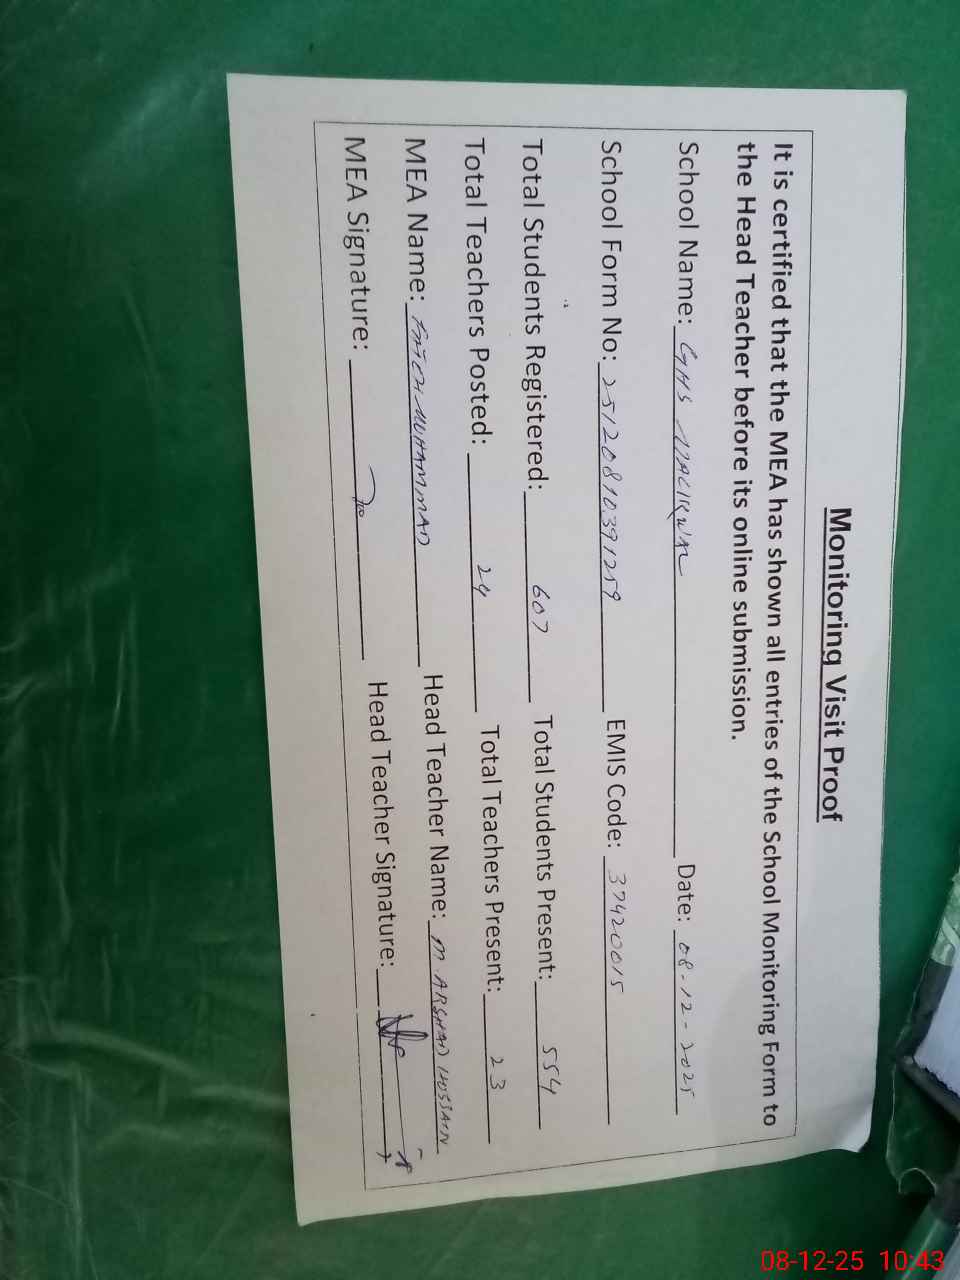 Monitoring Visit Proof
It is certified that the MEA has shown all entries of the School Monitoring Form to
the Head Teacher before its online submission.
School Name: GHS Date: 08-12-2025
School Form No: 25120810391259 EMIS Code: 37420015
Total Students Registered: 607 Total Students Present: 554
Total Teachers Posted: 24 Total Teachers Present: 23
MEA Name: FATEH MUHAMMAD Head Teacher Name: M. ARSHAD HUSSAIN
MEA Signature: Head Teacher Signature:
08-12-25 10:43